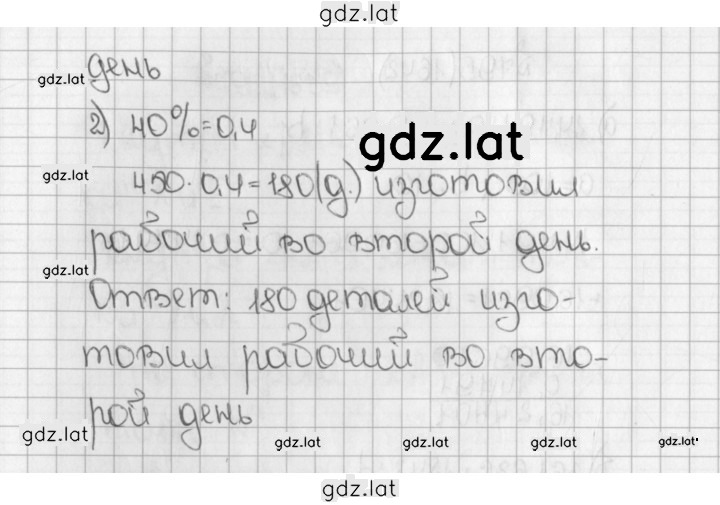 gdz.lat
день
gdz.lat
2) 40%=0,4
gdz.lat
450·0,4=180(д.) изготовил
gdz.lat
рабочий во второй день.
gdz.lat
Ответ: 180 деталей изго-
товил рабочий во вто-
рой день
gdz.lat
gdz.lat
gdz.lat
gdz.lat
gdz.lat
gdz.lat